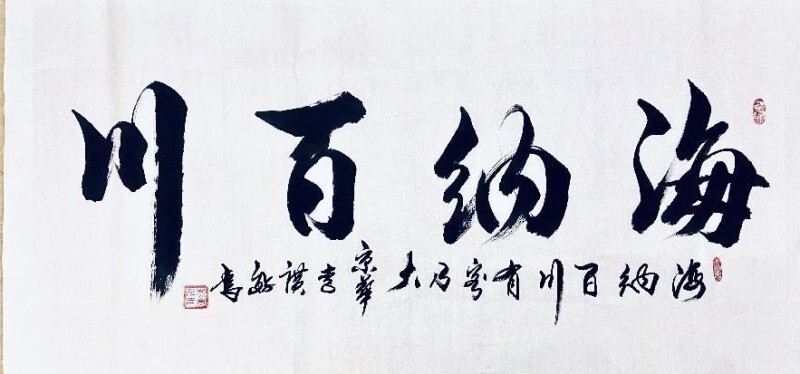 海纳百川
海纳百川有容乃大京华李祺敏书